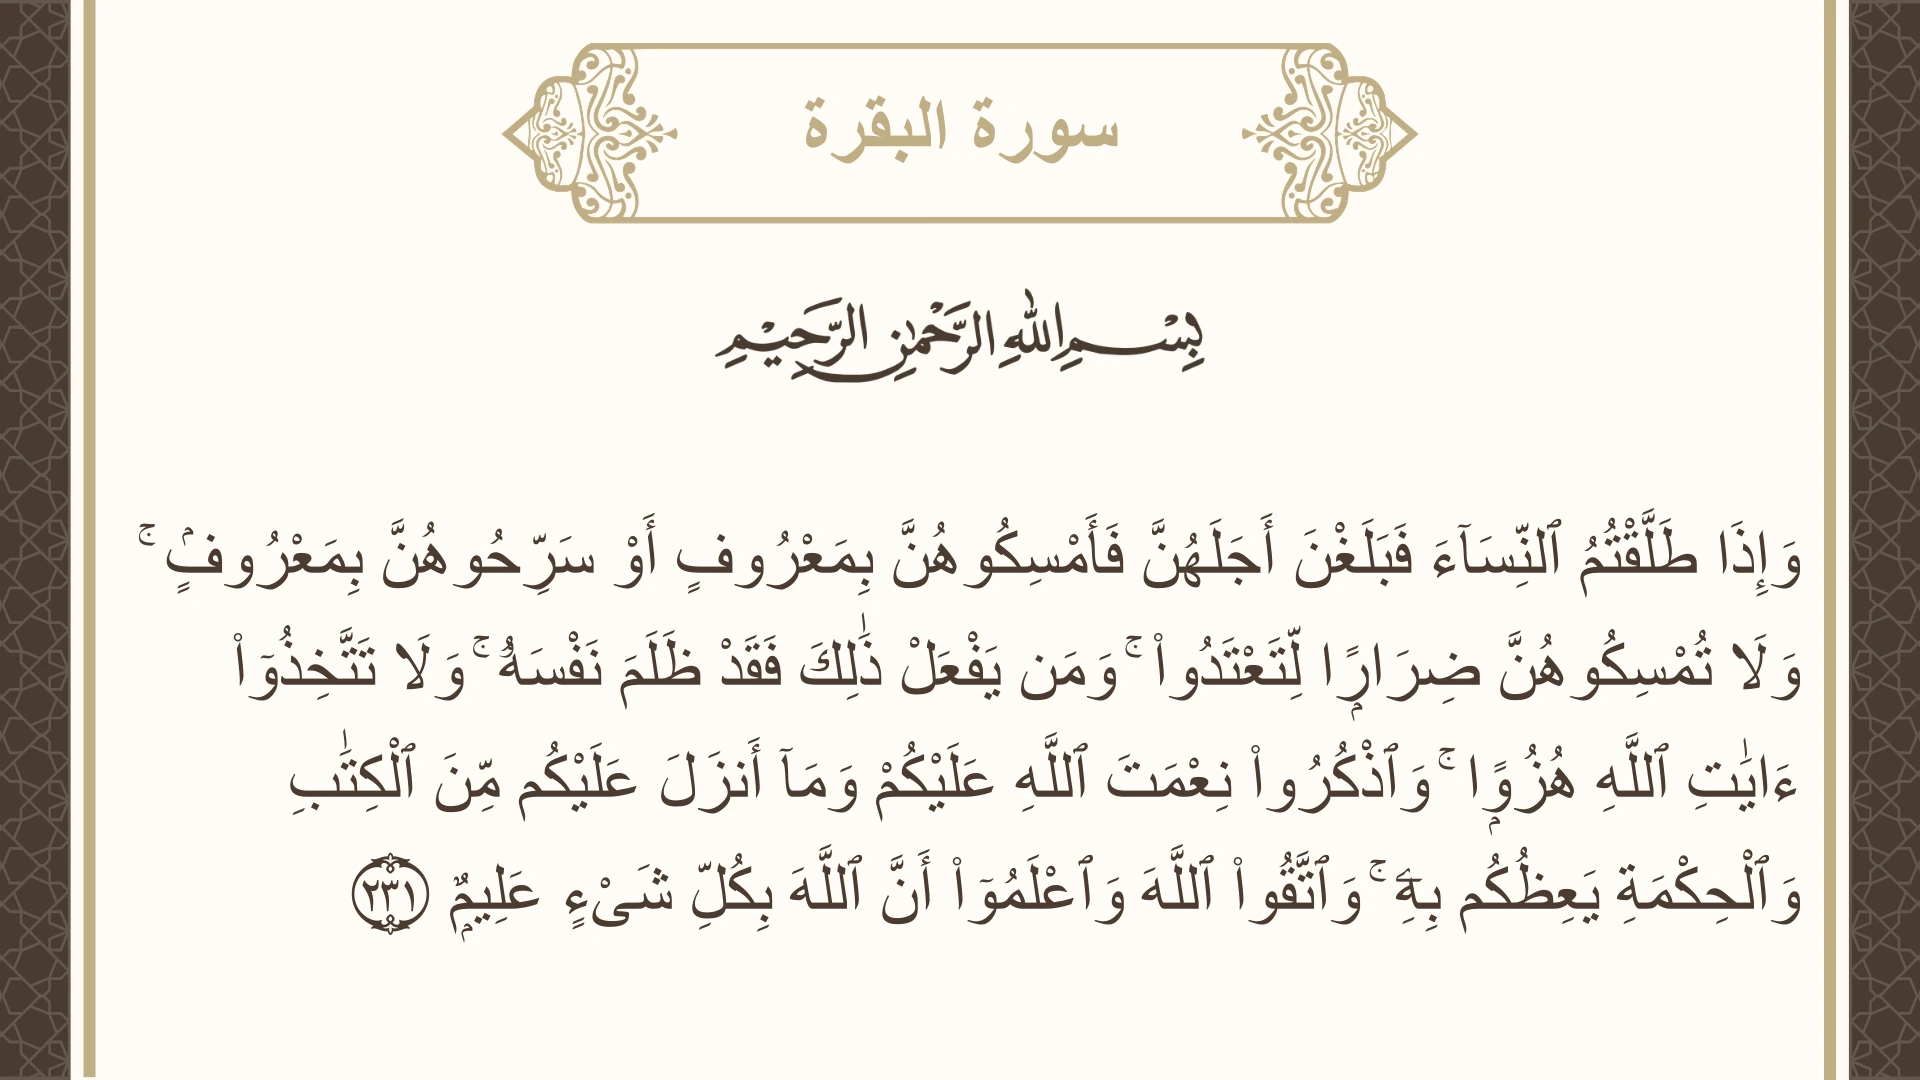 سورة البقرة
بِسْمِ اللهِ الرَّحْمٰنِ الرَّحِيْمِ
وَإِذَا طَلَّقْتُمُ ٱلنِّسَآءَ فَبَلَغْنَ أَجَلَهُنَّ فَأَمْسِكُوهُنَّ بِمَعْرُوفٍ أَوْ سَرِّحُوهُنَّ بِمَعْرُوفٍۢ ۚ
وَلَا تُمْسِكُوهُنَّ ضِرَارًۭا لِّتَعْتَدُوا۟ ۚ وَمَن يَفْعَلْ ذَٰلِكَ فَقَدْ ظَلَمَ نَفْسَهُۥ ۚ وَلَا تَتَّخِذُوٓا۟
ءَايَـٰتِ ٱللَّهِ هُزُوًۭا ۚ وَٱذْكُرُوا۟ نِعْمَتَ ٱللَّهِ عَلَيْكُمْ وَمَآ أَنزَلَ عَلَيْكُم مِّنَ ٱلْكِتَـٰبِ
وَٱلْحِكْمَةِ يَعِظُكُم بِهِۦ ۚ وَٱتَّقُوا۟ ٱللَّهَ وَٱعْلَمُوٓا۟ أَنَّ ٱللَّهَ بِكُلِّ شَىْءٍ عَلِيمٌۭ ٢٣١